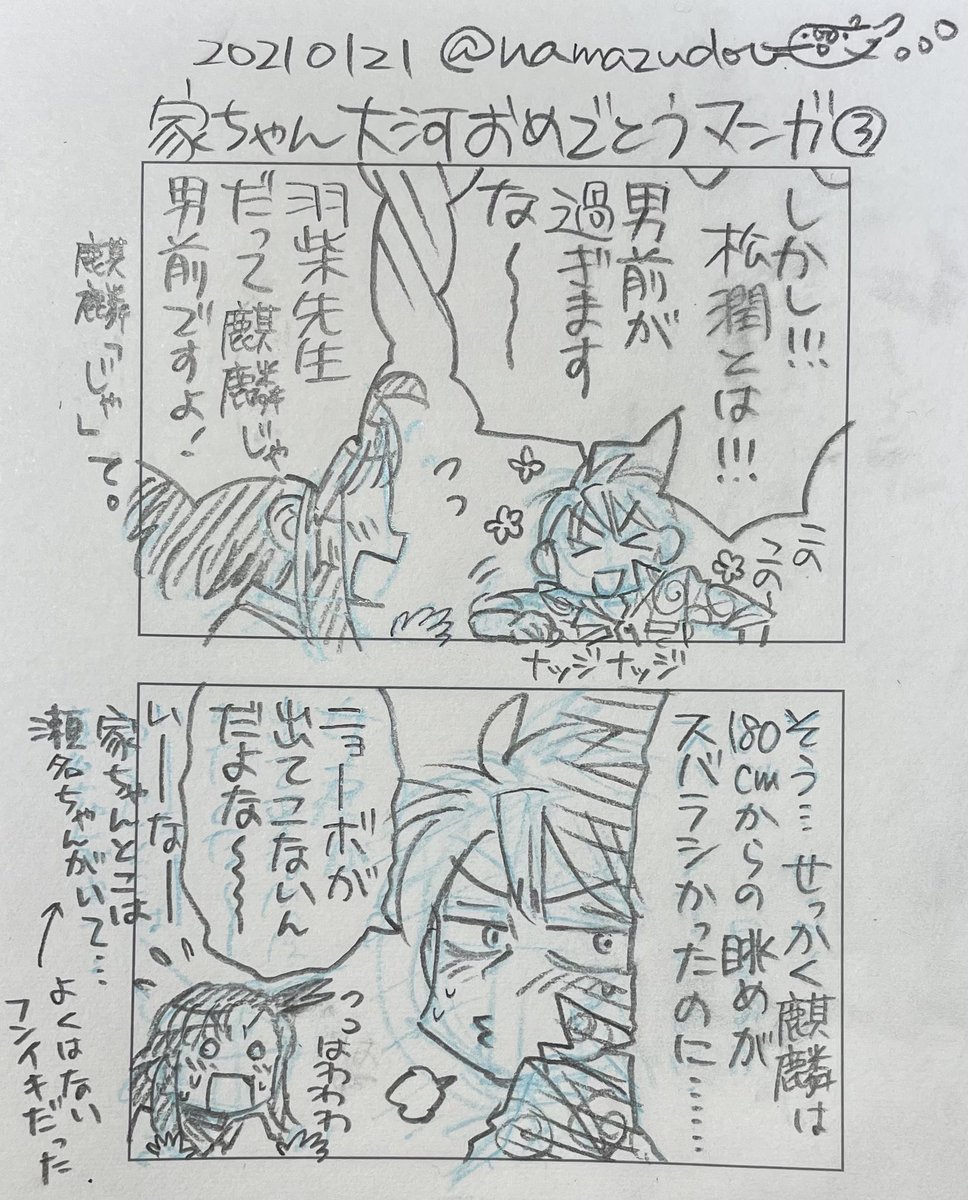 20210121 @namazudou
家ちゃん大河おめでとうマンガ③
しかし!!!
松潤とは!!!
男前が
過ぎます
な〜〜
羽柴先生
だって麒麟じゃ
男前ですよ!
麒麟「じゃ」て。
この
この〜
ナッジナッジ
そう…せっかく麒麟は
180cmからの眺めが
スバラシかったのに……
ニョーボが
出てこないん
だよな〜〜
いーーなー
家ちゃんとこは
瀬名ちゃんがいて…
よくはない
フンイキだった
っっはわわわ